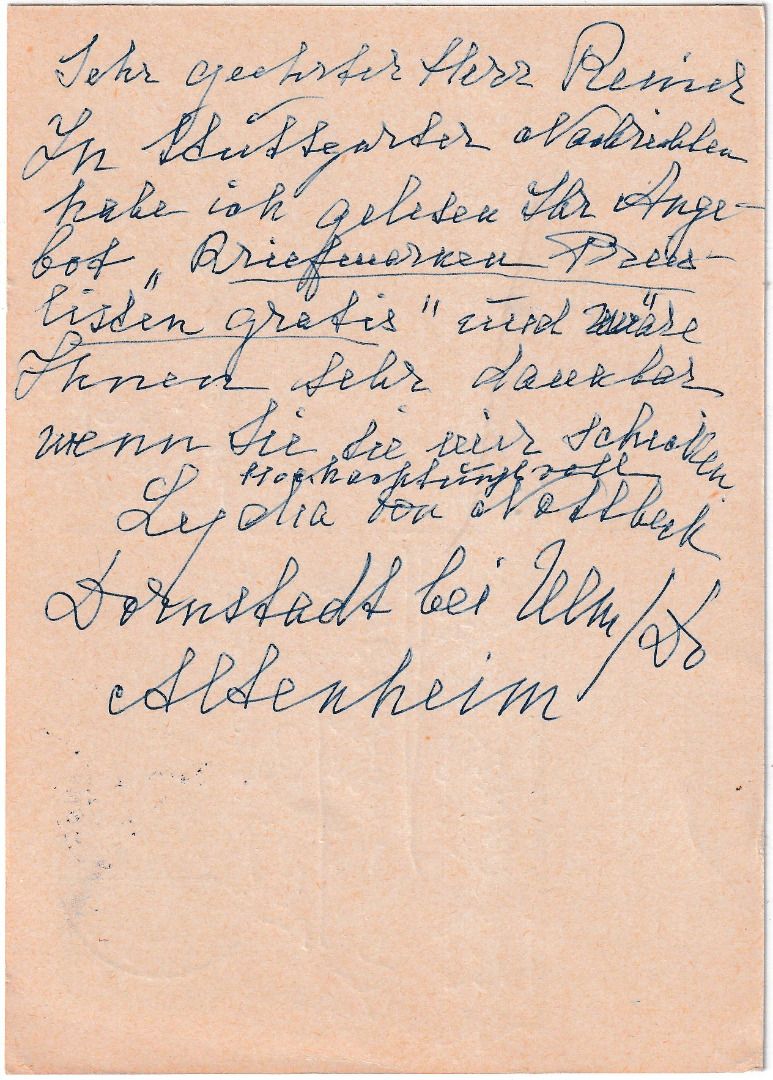 Sehr geehrter Herr Reiner
In Stuttgarter Nachrichten
habe ich gelesen Ihr Ange-
bot „Briefmarken Preis-
listen gratis" und wäre
Ihnen sehr dankbar
wenn Sie sie mir schicken
Hochachtungsvoll
Lydia von Nottbeck
Dornstadt bei Ulm/Do
Altenheim